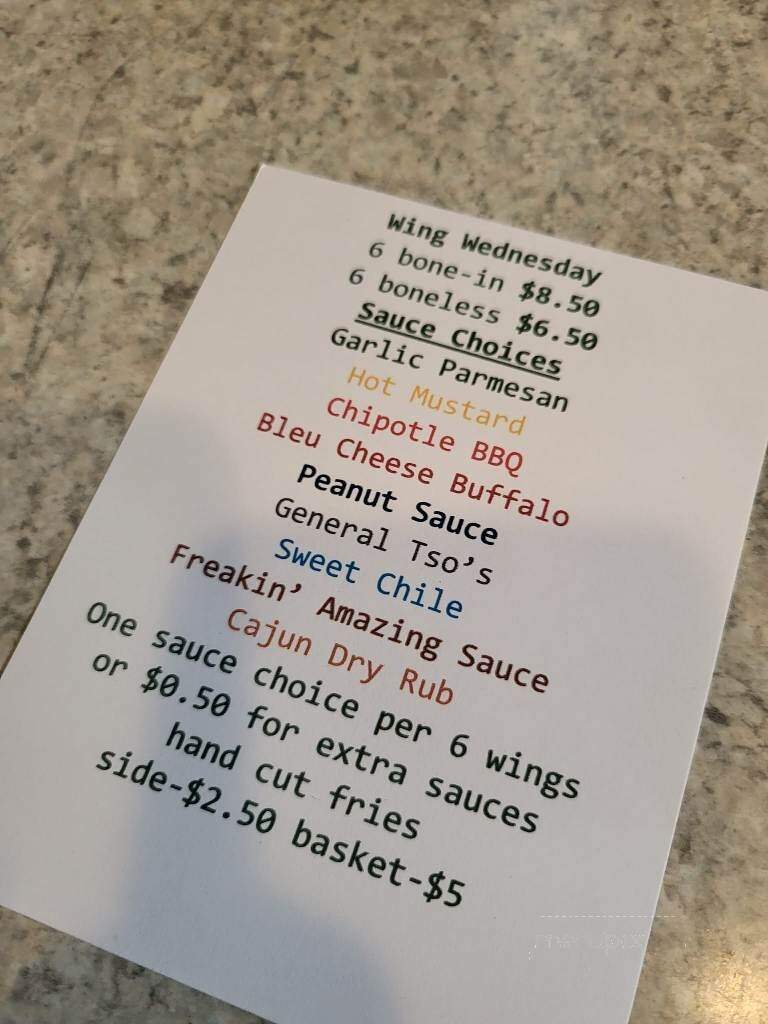 Wing Wednesday
6 bone-in $8.50
6 boneless $6.50
Sauce Choices
Garlic Parmesan
Hot Mustard
Chipotle BBQ
Bleu Cheese Buffalo
Peanut Sauce
General Tso's
Sweet Chile
Freakin' Amazing Sauce
Cajun Dry Rub
One sauce choice per 6 wings
or $0.50 for extra sauces
hand cut fries
side-$2.50 basket-$5